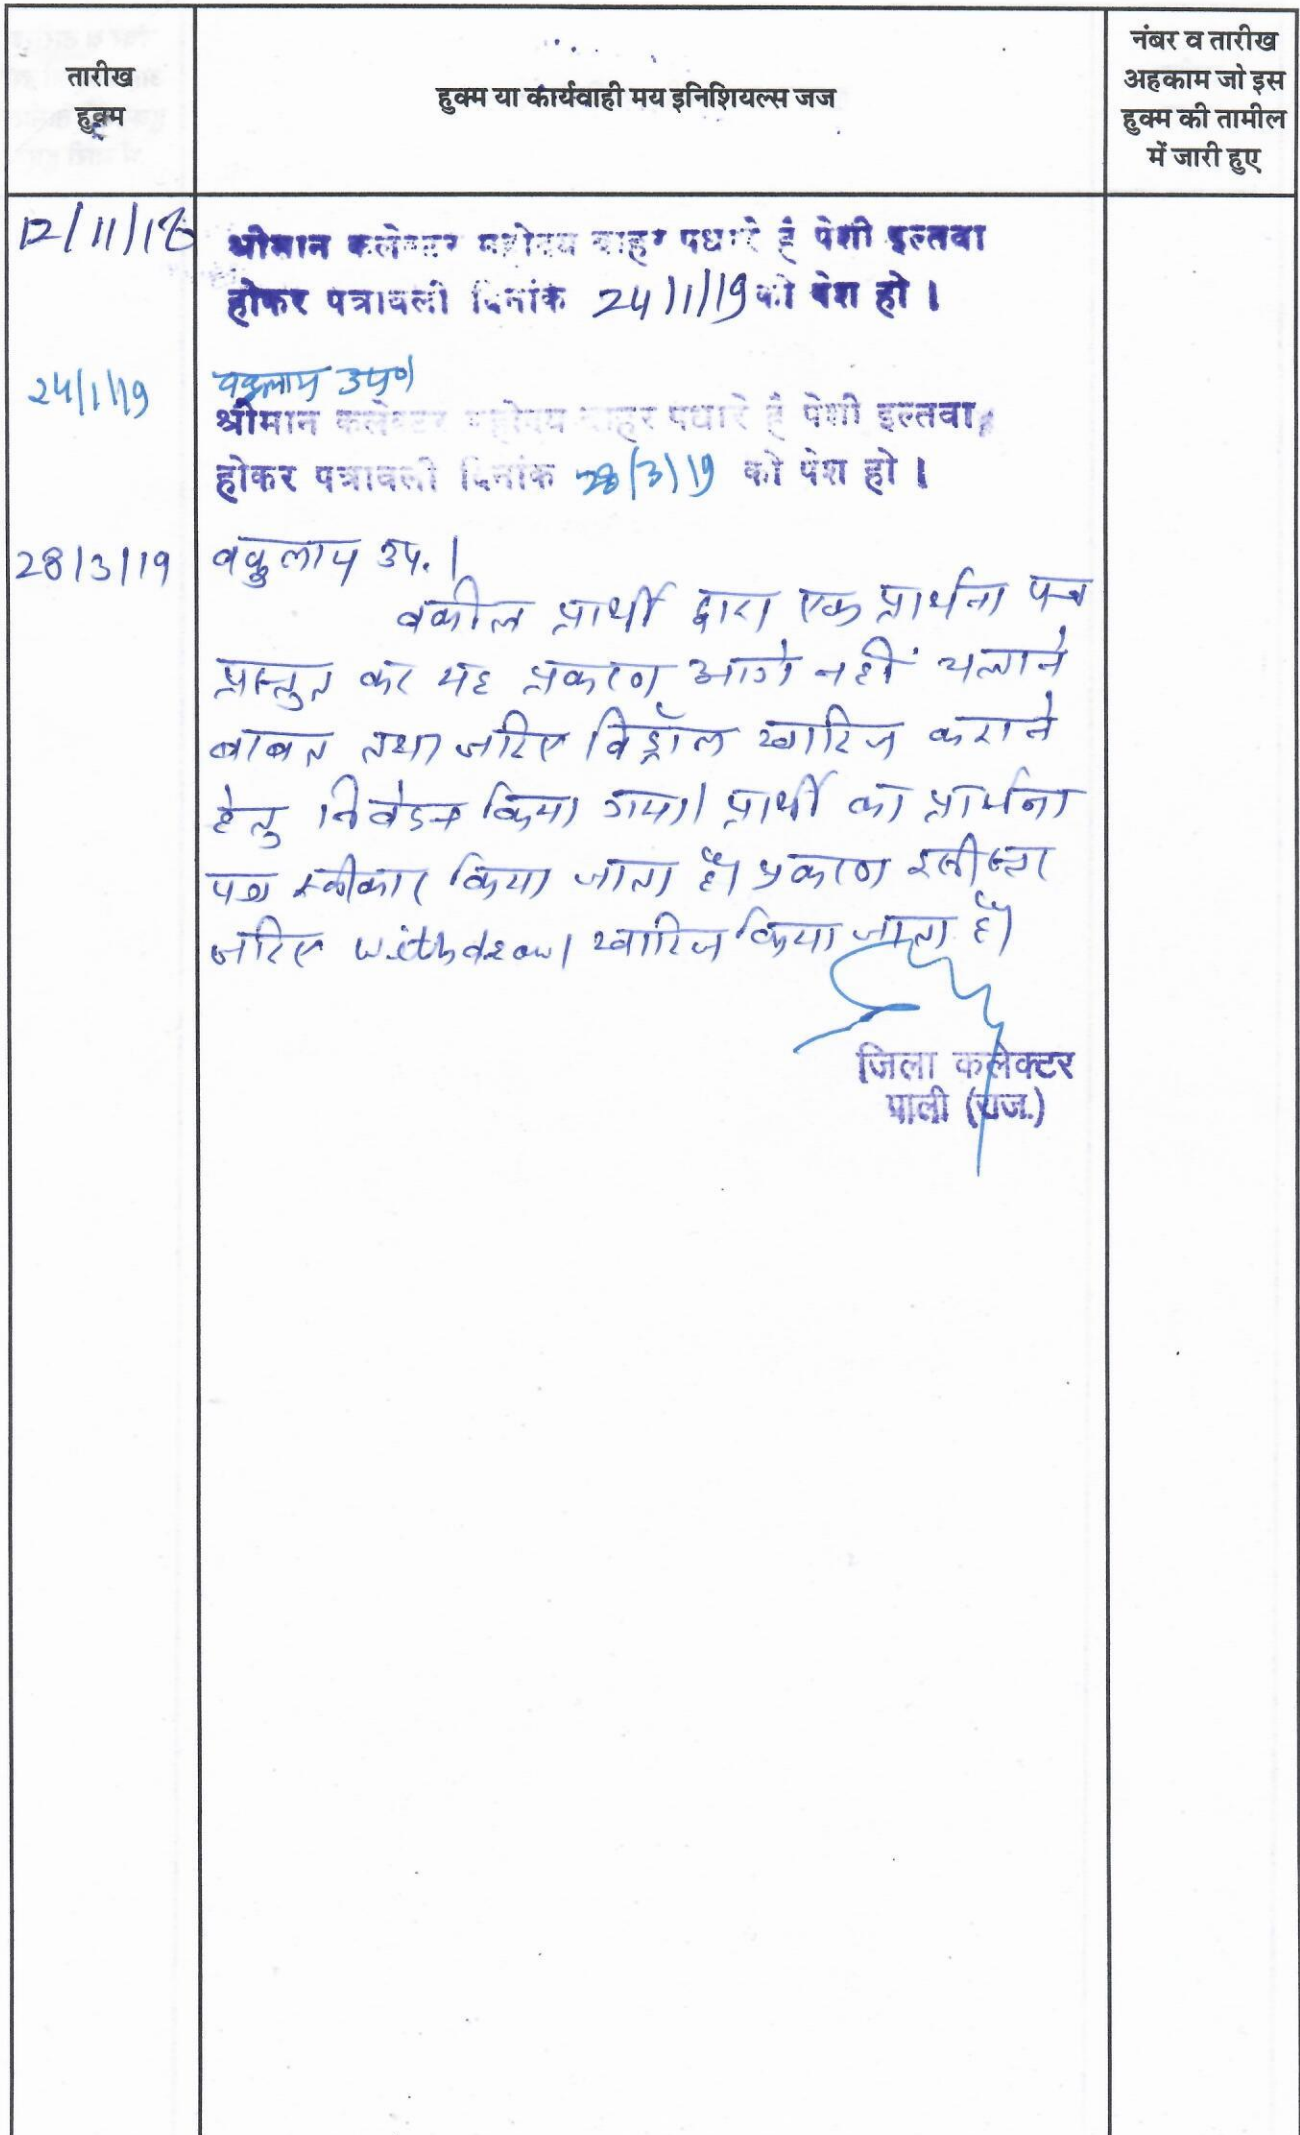 तारीख
हुक्म
हुक्म या कार्यवाही मय इनिशियल्स जज
नंबर व तारीख
अहकाम जो इस
हुक्म की तामील
में जारी हुए
12/11/18
श्रीमान कलेक्टर महोदय बाहर पधारे हैं पेशी इल्तवा
होकर पत्रावली दिनांक 24/1/19 को पेश हो ।
24/1/19
वकुलाय उप०
श्रीमान कलेक्टर महोदय बाहर पधारे हैं पेशी इल्तवा
होकर पत्रावली दिनांक 28/3/19 को पेश हो ।
28/3/19
वकुलाय उप. ।
वकील प्रार्थी द्वारा एक प्रार्थना पत्र
प्रस्तुत कर यह प्रकरण आगे नहीं चलाने
बाबत तथा जरिए विड्रॉल खारिज कराने
हेतु निवेदन किया गया। प्रार्थी का प्रार्थना
पत्र स्वीकार किया जाता है। प्रकरण इसी स्तर
जरिए withdrawl खारिज किया जाता है।
जिला कलेक्टर
पाली (राज.)